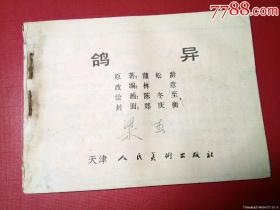 7788.com
鸽异
原著：蒲松龄
改编：林彦
绘画：陈冬至
封面：郑庆衡
梁
天津人民美术出版社